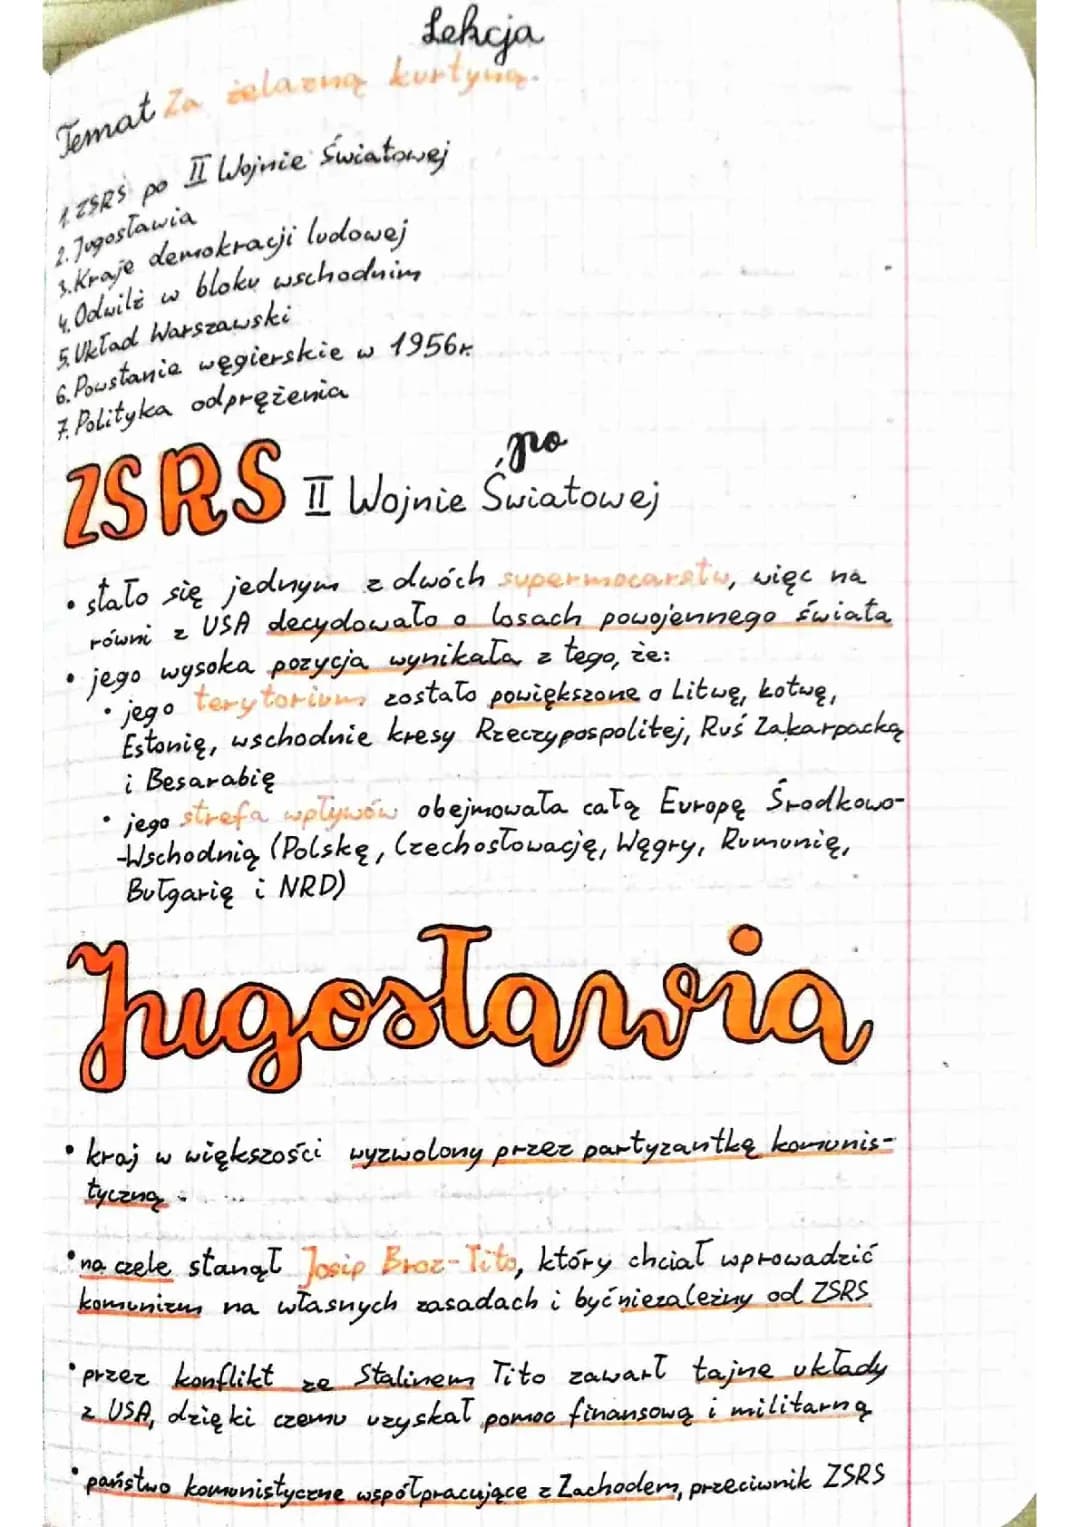 Lekcja
Temat Za żelazną kurtyną.
1. ZSRS po II Wojnie Światowej
2. Jugosławia
3. Kraje demokracji ludowej
4. Odwilż w bloku wschodnim
5. Układ Warszawski
6. Powstanie węgierskie w 1956r.
7. Polityka odprężenia
ZSRS po
II Wojnie Światowej
• stało się jednym z dwóch supermocarstw, więc na
równi z USA decydowało o losach powojennego świata
• jego wysoka pozycja wynikała z tego, że:
• jego terytorium zostało powiększone o Litwę, Łotwę,
Estonię, wschodnie kresy Rzeczypospolitej, Ruś Zakarpacką
i Besarabię
• jego strefa wpływów obejmowała całą Europę Środkowo-
-Wschodnią (Polskę, Czechosłowację, Węgry, Rumunię,
Bułgarię i NRD)
Jugosławia
• kraj w większości wyzwolony przez partyzantkę komunis-
tyczną
• na czele stanął Josip Broz-Tito, który chciał wprowadzić
komunizm na własnych zasadach i być niezależny od ZSRS
• przez konflikt ze Stalinem Tito zawarł tajne układy
z USA, dzięki czemu uzyskał pomoc finansową i militarną
• państwo komunistyczne współpracujące z Zachodem, przeciwnik ZSRS